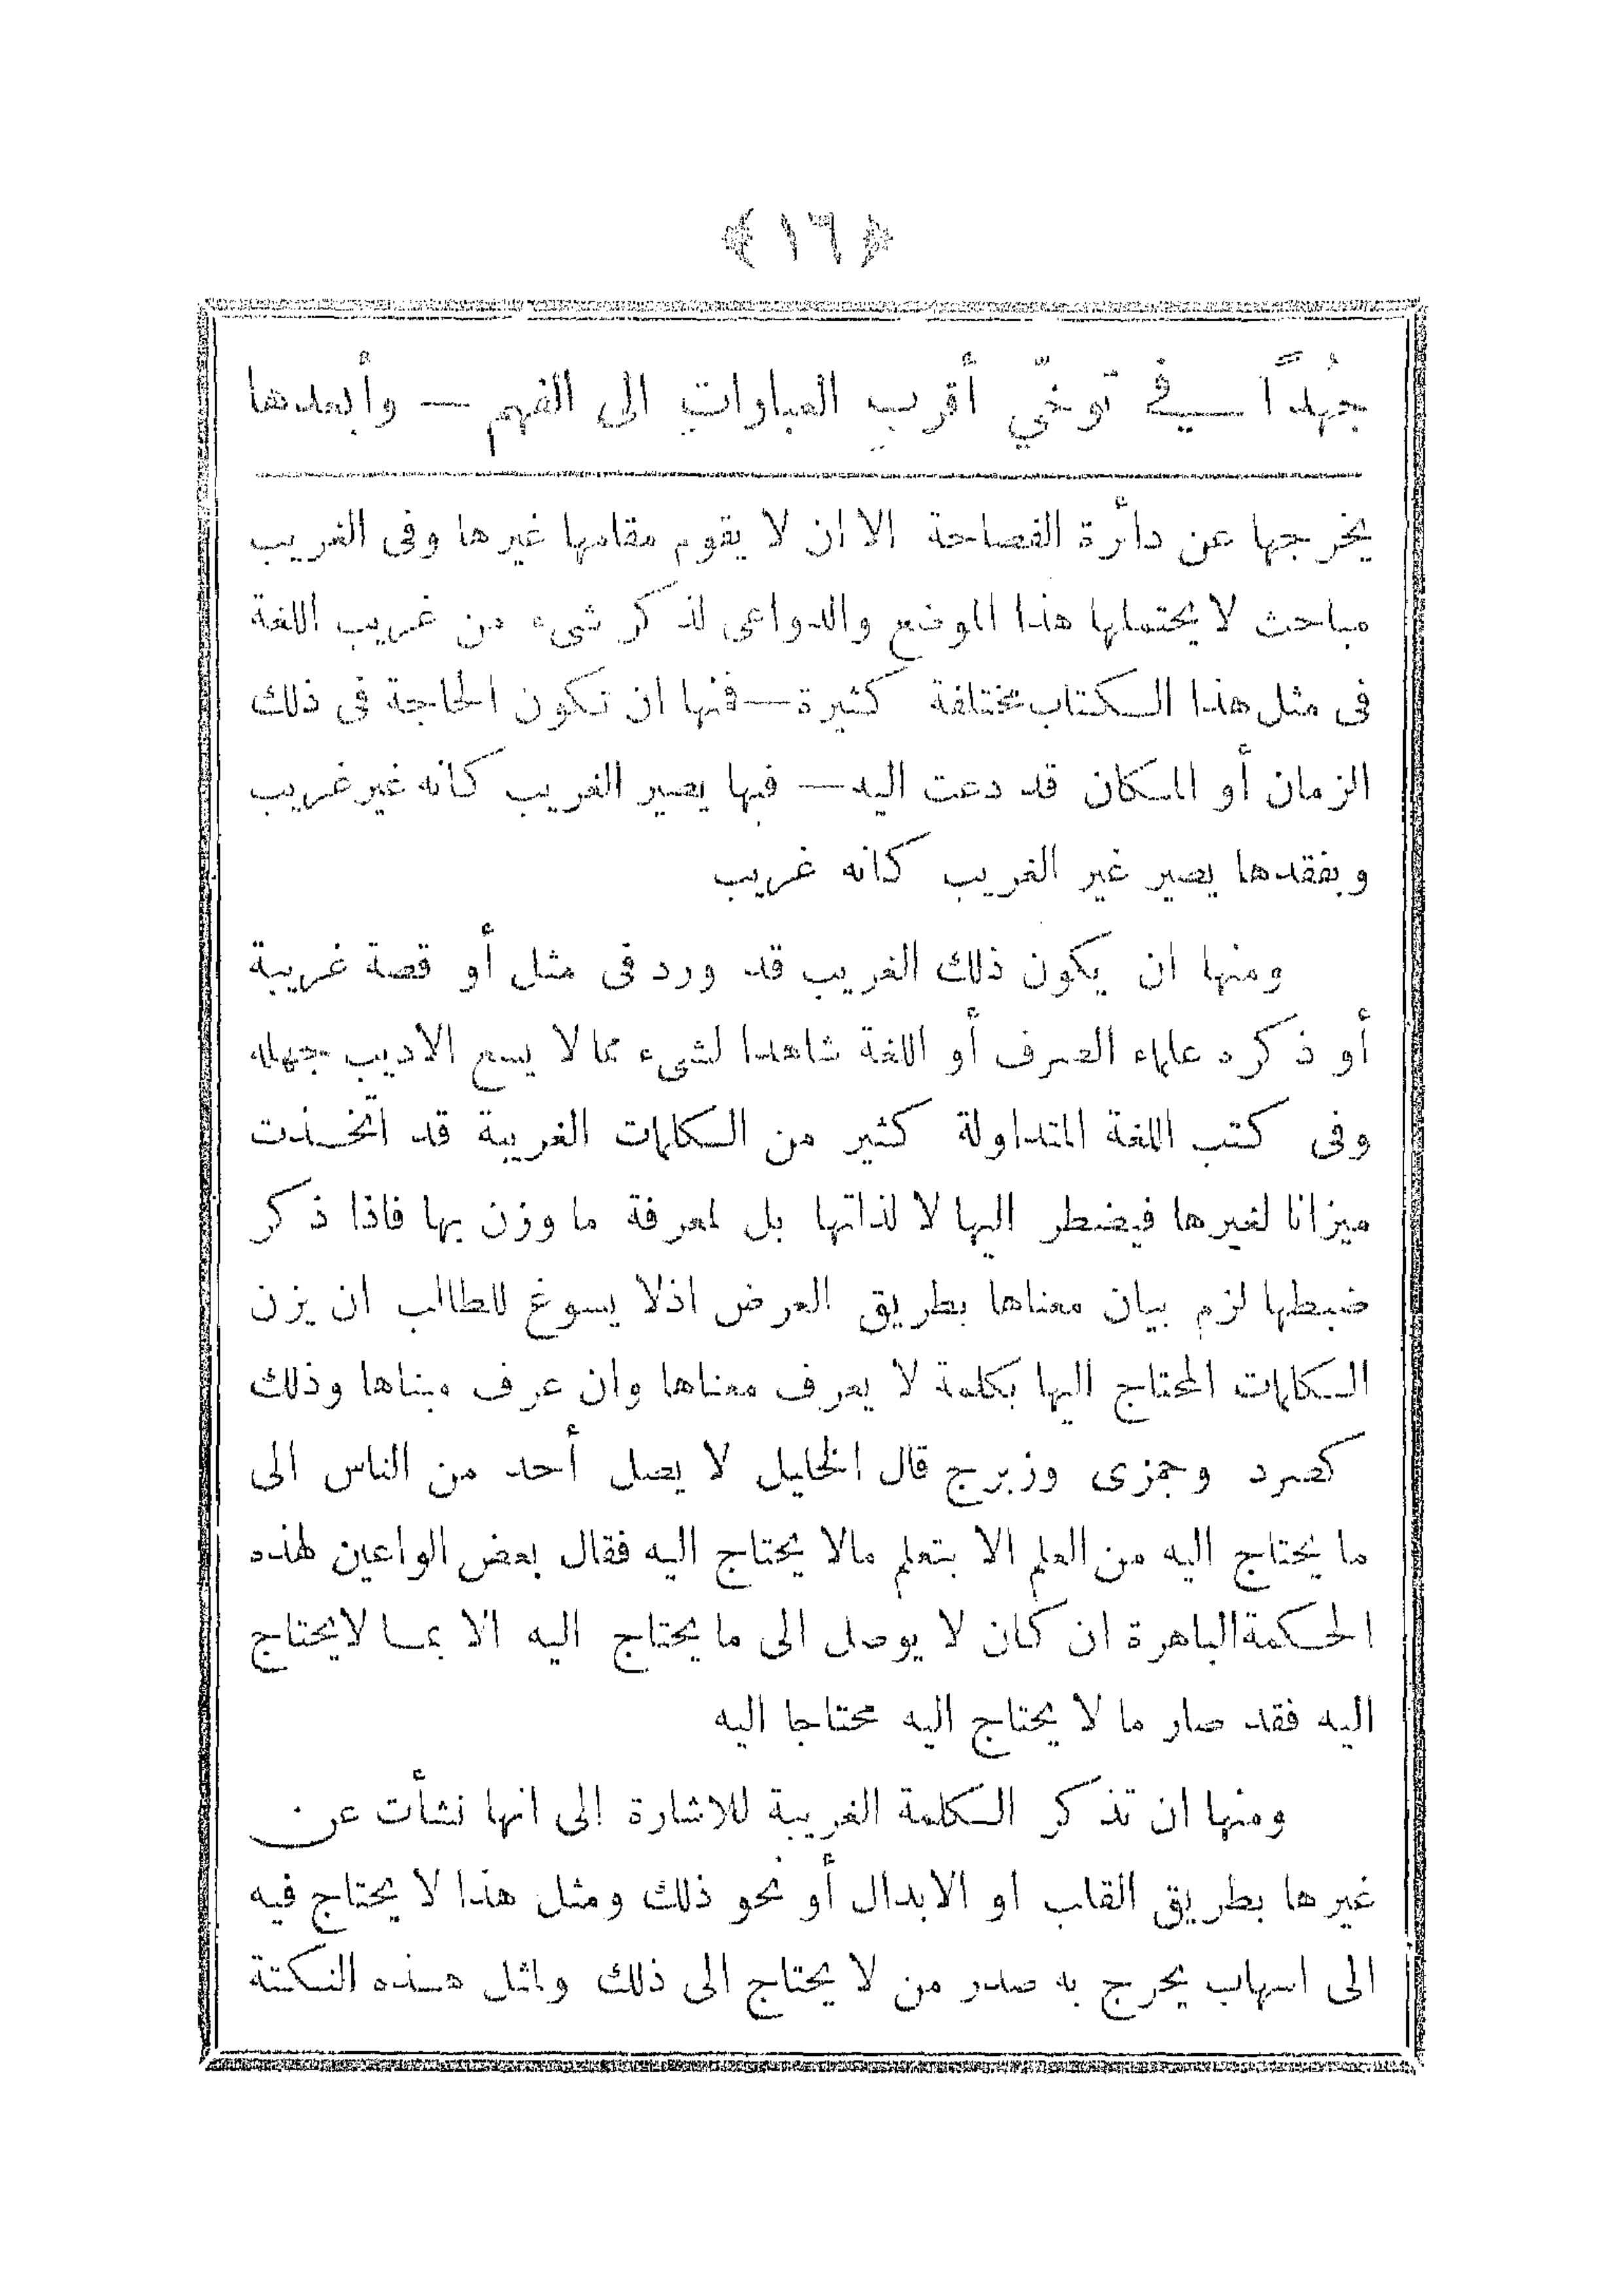 ﴿ ١٦ ﴾
جهُدًا في توخّي أقرب العبارات الى الفهم — وأبعدها
يخرجها عن دائرة الفصاحة الا ان لا يقوم مقامها غيرها وفى الغريب
مباحث لا يحتملها هذا الموضع والدواعى لذكر شىء من غريب اللغة
فى مثل هذا الكتاب مختلفة كثيرة — فمنها ان تكون الحاجة فى ذلك
الزمان أو المكان قد دعت اليه — فبها يصير الغريب كانه غير غريب
وبفقدها يصير غير الغريب كانه غريب
ومنها ان يكون ذلك الغريب قد ورد فى مثل أو قصة غريبة
أو ذكره علماء الصرف أو اللغة شاهدا لشىء مما لا يسع الاديب جهله
وفى كتب اللغة المتداولة كثير من الكلمات الغريبة قد اتّخذت
ميزانا لغيرها فيضطر اليها لا لذاتها بل لمعرفة ما وزن بها فاذا ذكر
ضبطها لزم بيان معناها بطريق العرض اذ لا يسوغ للطالب ان يزن
الكلمات المحتاج اليها بكلمة لا يعرف معناها وان عرف مبناها وذلك
كصرد وجمزى وزبرج قال الخليل لا يصل أحد من الناس الى
ما يحتاج اليه من العلم الا بتعلم مالا يحتاج اليه فقال بعض الواعين لهذه
الحكمة الباهرة ان كان لا يوصل الى ما يحتاج اليه الا بما لا يحتاج
اليه فقد صار ما لا يحتاج اليه محتاجا اليه
ومنها ان تذكر الكلمة الغريبة للاشارة إلى انها نشأت عن
غيرها بطريق القلب او الابدال أو نحو ذلك ومثل هذا لا يحتاج فيه
الى اسهاب يحرج به صدر من لا يحتاج الى ذلك ولمثل هذه النكتة